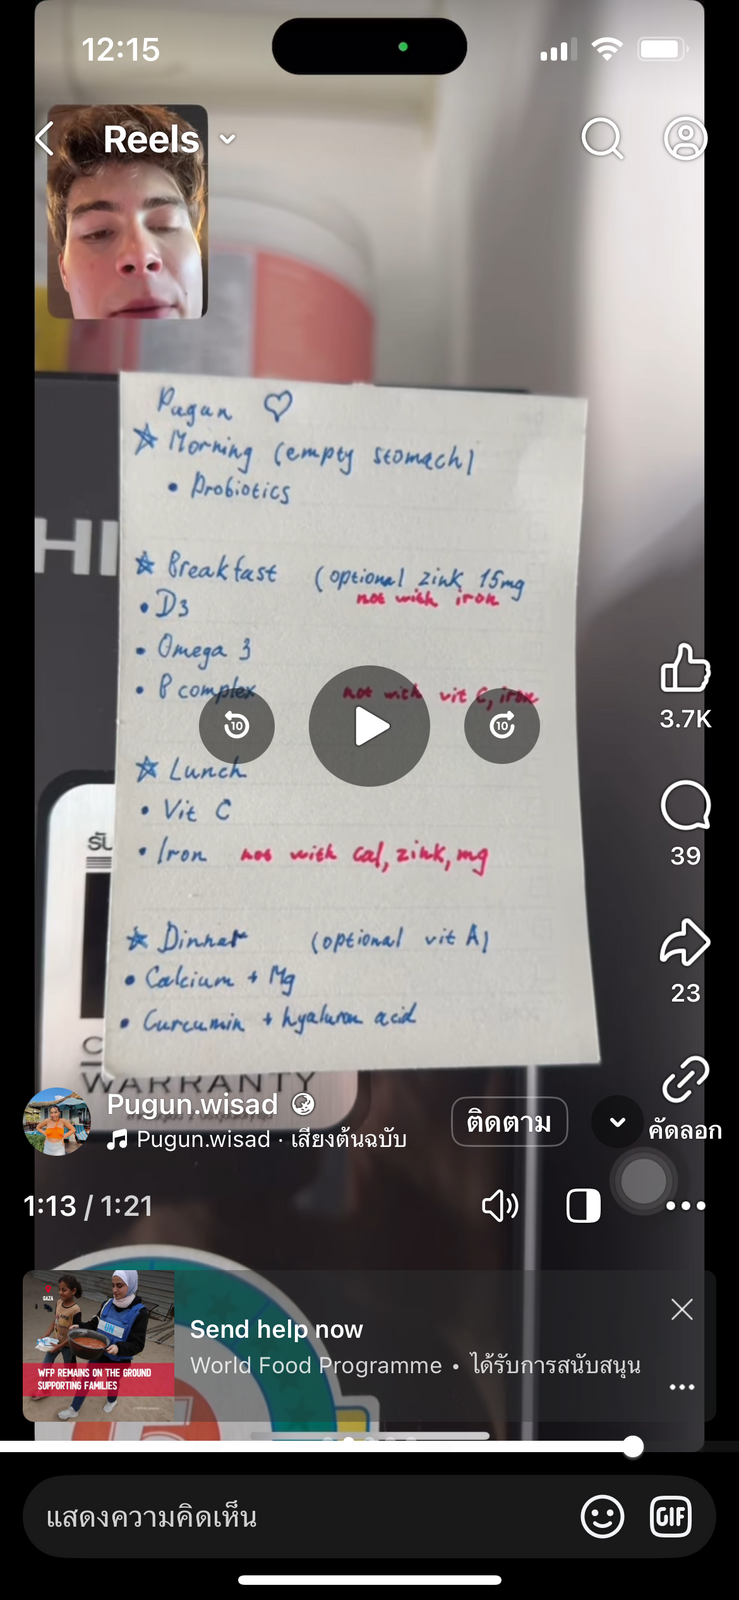 12:15
Reels
Pugun ♡
☆ Morning (empty stomach)
• Probiotics
☆ Breakfast (optional zink 15mg
not with iron
• D3
• Omega 3
• B complex not with vit C, iron
☆ Lunch
• Vit C
• Iron not with Cal, zink, mg
☆ Dinner (optional vit A)
• Calcium + Mg
• Curcumin + hyaluron acid
HI
WARRANTY
10
10
3.7K
39
23
คัดลอก
Pugun.wisad
Pugun.wisad · เสียงต้นฉบับ
ติดตาม
1:13 / 1:21
GAZA
WFP REMAINS ON THE GROUND
SUPPORTING FAMILIES
Send help now
World Food Programme • ได้รับการสนับสนุน
5
แสดงความคิดเห็น
GIF